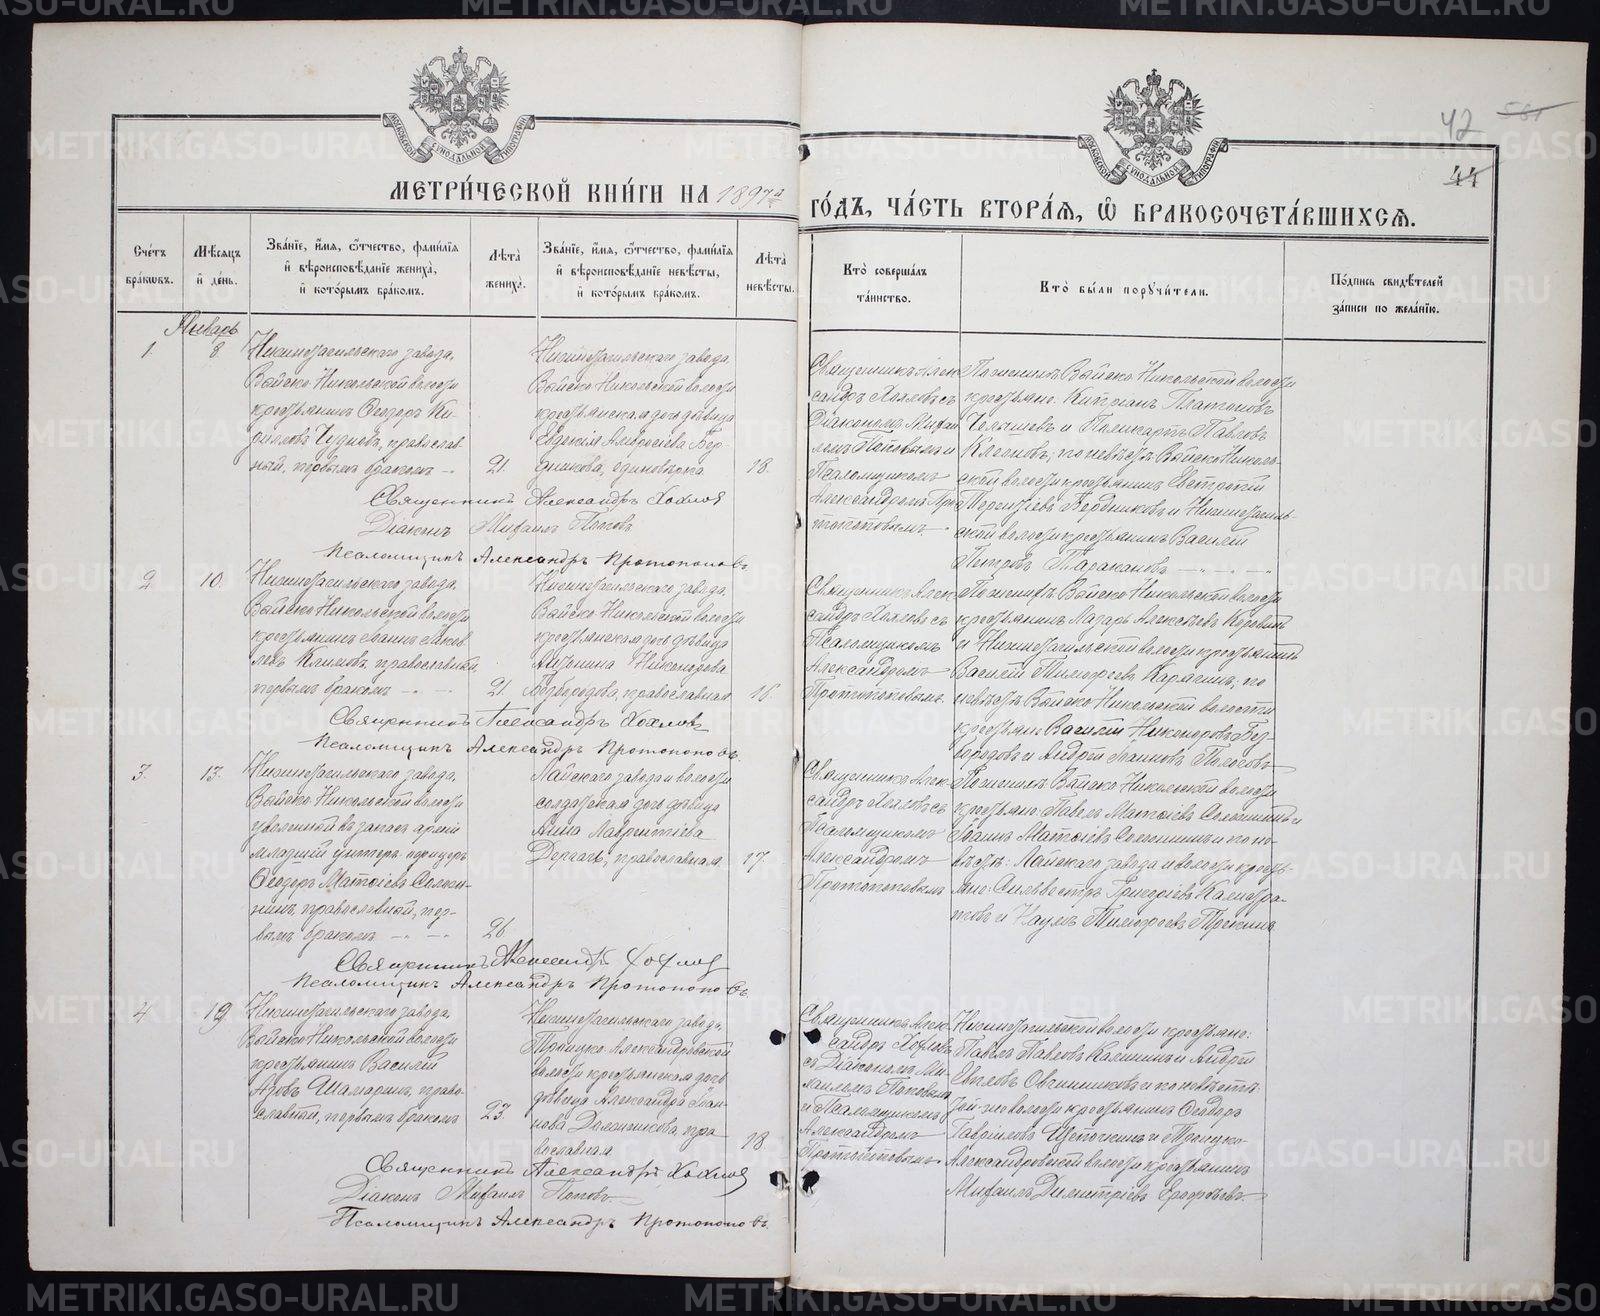 МЕТРИ́ЧЕСКОЙ КНИ́ГИ НА 1897й ГО́ДЪ, ЧА́СТЬ ВТОРА́Я, Ѿ БРАКОСОЧЕТА́ВШИХСЯ.
42
44
Сче́тъ бра́ковъ.
Мѣ́сяцъ и҆ де́нь.
Зва́нїе, и҆́мя, ѻ҆́тчество, фами́лїя и҆ вѣроисповѣ́данїе жениха̀, и҆ кото́рымъ бра́комъ.
Лѣ́та жениха̀.
Зва́нїе, и҆́мя, ѻ҆́тчество, фами́лїя и҆ вѣроисповѣ́данїе невѣ́сты, и҆ кото́рымъ бра́комъ.
Лѣ́та невѣ́сты.
Кто̀ соверша́лъ та́инство.
Кто̀ бы́ли поручи́тели.
По́дпись свидѣ́телей за́писи по жела́нїю.
Январь
1.
8.
Нижнетагильскаго завода,
Выйско-Никольской волости
крестьянинъ Ѳеодоръ Ки-
рилловъ Чудновъ, православ-
ный, первымъ бракомъ
21.
Нижнетагильскаго завода,
Выйско-Никольской волости
крестьянская дочь девица
Евдокія Амвросіева Бер-
дникова, единовѣрка
18.
Священникъ Алек-
сандръ Хохловъ съ
Діакономъ Михаи-
ломъ Поповымъ и
Псаломщикомъ
Александромъ Про-
топоповымъ.
По женихѣ Выйско-Никольской волости
крестьяне: Кипріанъ Платоновъ
Челышевъ и Поликарпъ Павловъ
Клеповъ; по невѣстѣ: Выйско-Николь-
ской волости крестьянинъ Евстратій
Терентіевъ Бердниковъ и Нижнетагиль-
ской волости крестьянинъ Василій
Петровъ Таракановъ
Священникъ Александръ Хохловъ
Діаконъ Михаилъ Поповъ
Псаломщикъ Александръ Протопоповъ
2
10.
Нижнетагильскаго завода,
Выйско-Никольской волости
крестьянинъ Іоаннъ Іаков-
левъ Климовъ, православный,
первымъ бракомъ
21.
Нижнетагильскаго завода,
Выйско-Никольской волости
крестьянская дочь девица
Антонина Никонорова
Безбородова, православная
18.
Священникъ Алек-
сандръ Хохловъ съ
Псаломщикомъ
Александромъ
Протопоповымъ.
По женихѣ Выйско-Никольской волости
крестьянинъ Лазарь Алексѣевъ Коровинъ
и Нижнетагильской волости крестьянинъ
Василій Тимофеевъ Карягинъ; по
невѣстѣ Выйско-Никольской волости
крестьяне: Василій Никоноровъ Без-
бородовъ и Андрей Іоанновъ
Священникъ Александръ Хохловъ
Псаломщикъ Александръ Протопоповъ
3.
13.
Нижнетагильскаго завода,
Выйско-Никольской волости
уволенный въ запасъ арміи
младшій унтеръ-офицеръ
Ѳеодоръ Матѳіевъ Солон-
нинъ, православный, пер-
вымъ бракомъ
26
Лайскаго завода и волости
солдатская дочь девица
Анна Лаврентіева
Дергачъ, православная
17.
Священникъ Алек-
сандръ Хохловъ съ
Псаломщикомъ
Александромъ
Протопоповымъ
По женихѣ Выйско-Никольской волости
крестьяне: Павелъ Матѳіевъ и
Іоаннъ Матѳіевъ и по не-
вѣстѣ: Лайскаго завода и волости кресть-
яне: Сильвестръ Григоріевъ
и Наумъ Тимофеевъ
Священникъ Александръ Хохловъ
Псаломщикъ Александръ Протопоповъ
4
19
Нижнетагильскаго завода,
Выйско-Никольской волости
крестьянинъ Василій
Шамаринъ, право-
славный, первымъ бракомъ
23.
Нижнетагильскаго завода,
Троицко-Александровской
волости крестьянская дочь
девица Александра Іоан-
нова Долгинкова, пра-
вославная
18.
Священникъ Алек-
сандръ Хохловъ
съ Діакономъ Ми-
хаиломъ Поповымъ
и Псаломщикомъ
Александромъ
Протопоповымъ
Нижнетагильской волости крестьяне:
Павелъ Павловъ Калининъ и Андрей
Овчинниковъ и по невѣстѣ:
той-же волости крестьянинъ Ѳеодоръ
Гавріиловъ Щеточкинъ и Троицко-
Александровской волости крестьянинъ
Михаилъ Димитріевъ Ерофѣевъ
Священникъ Александръ Хохловъ
Діаконъ Михаилъ Поповъ
Псаломщикъ Александръ Протопоповъ
METRIKI.GASO-URAL.RU